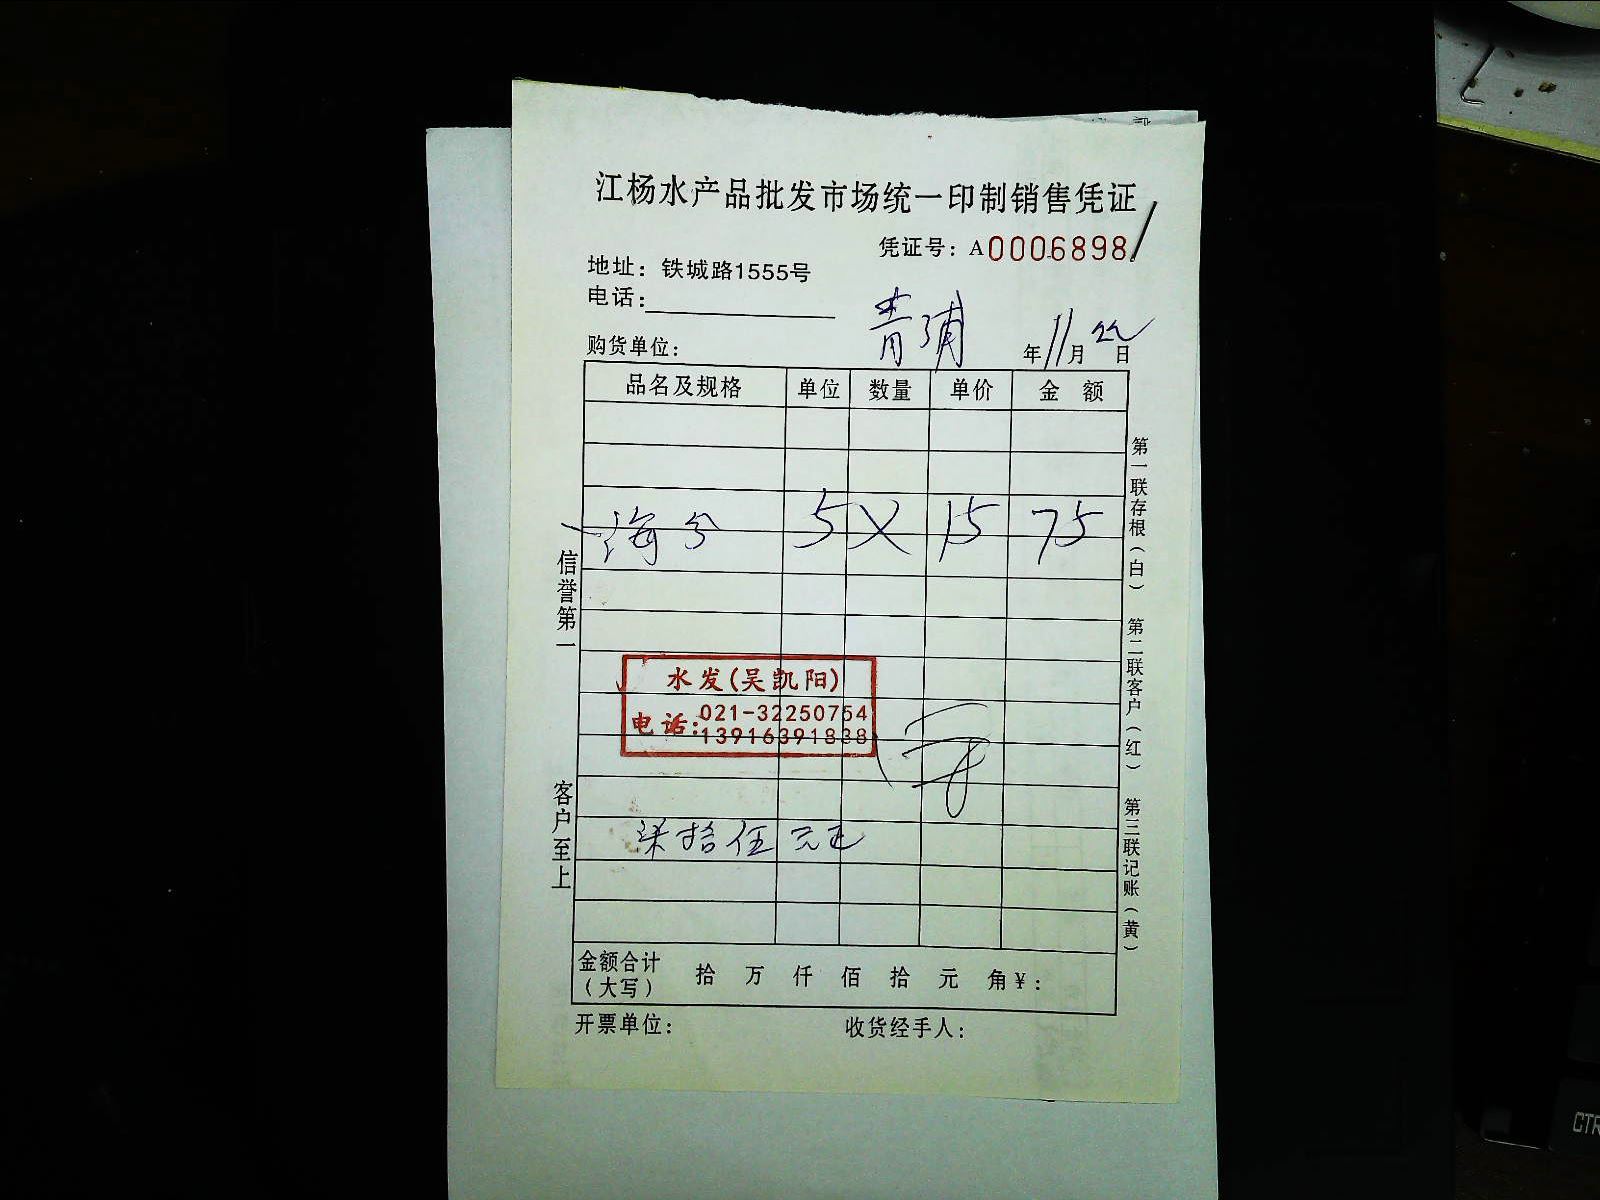 江杨水产品批发市场统一印制销售凭证
凭证号：A0006898
地址：铁城路1555号
电话：
青浦
购货单位：
年11月22日
品名及规格 单位 数量 单价 金 额
海 5 X 15 75
水发(吴凯阳)
电话：021-32250754
13916391838
柒拾伍元正
金额合计（大写） 拾 万 仟 佰 拾 元 角¥：
开票单位： 收货经手人：
信誉第一
客户至上
第一联存根（白）
第二联客户（红）
第三联记账（黄）
CTR